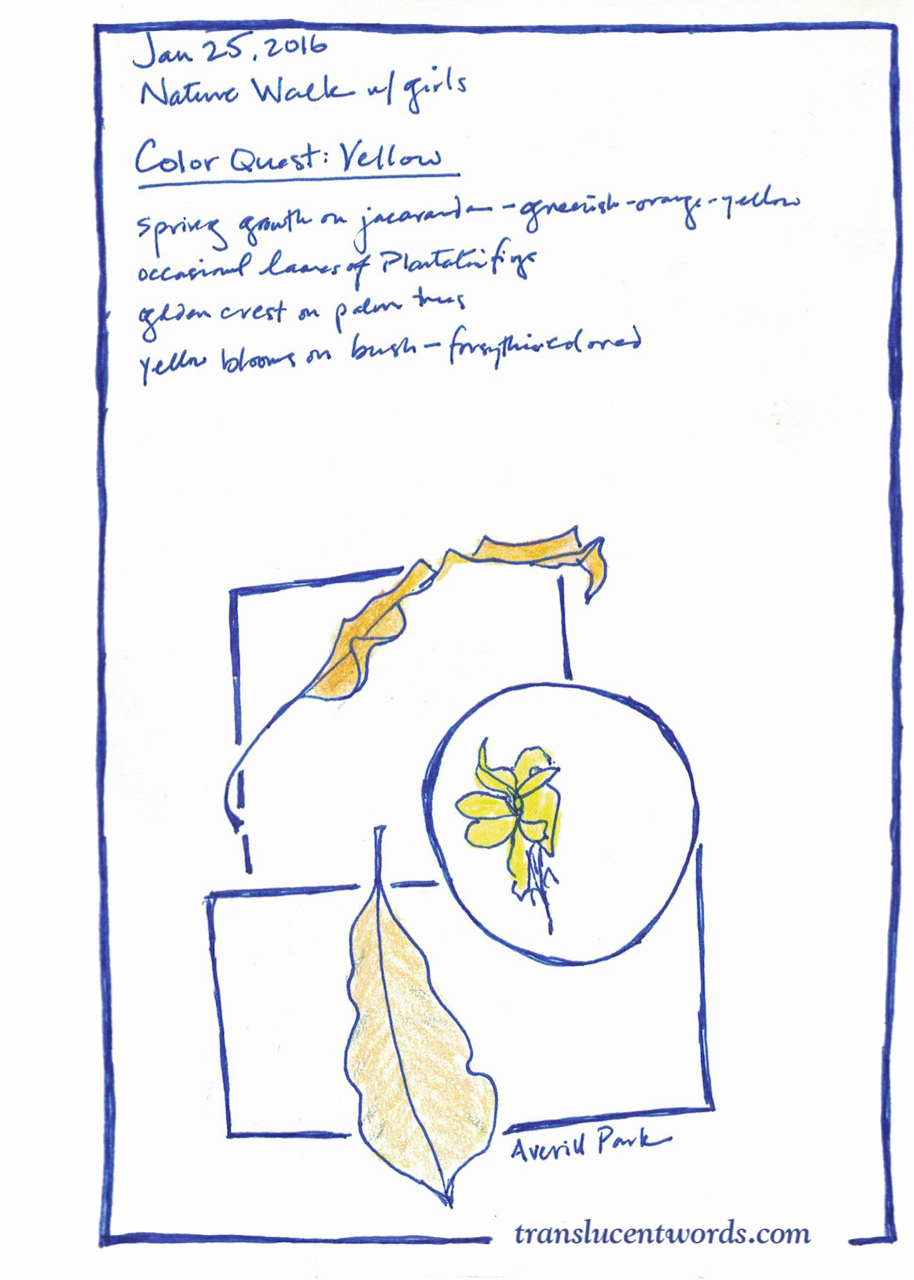 Jan 25, 2016
Nature Walk w/ girls
Color Quest: Yellow
spring growth on jacaranda - greenish-orange-yellow
occasional leaves of figs
golden crest on palm trees
yellow blooms on bush - forsythia colored
Averill Park
translucentwords.com